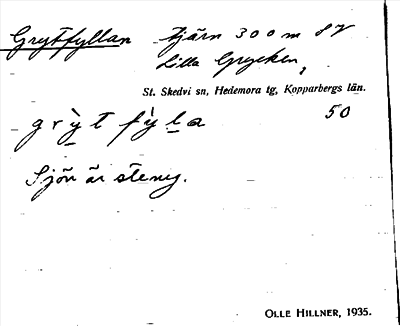 Grytfyllan tjärn 300 m SV
Lilla Grycken,
St. Skedvi sn, Hedemora tg, Kopparbergs län.
grỳt fỳla 50
Sjön är stenig.
OLLE HILLNER, 1935.